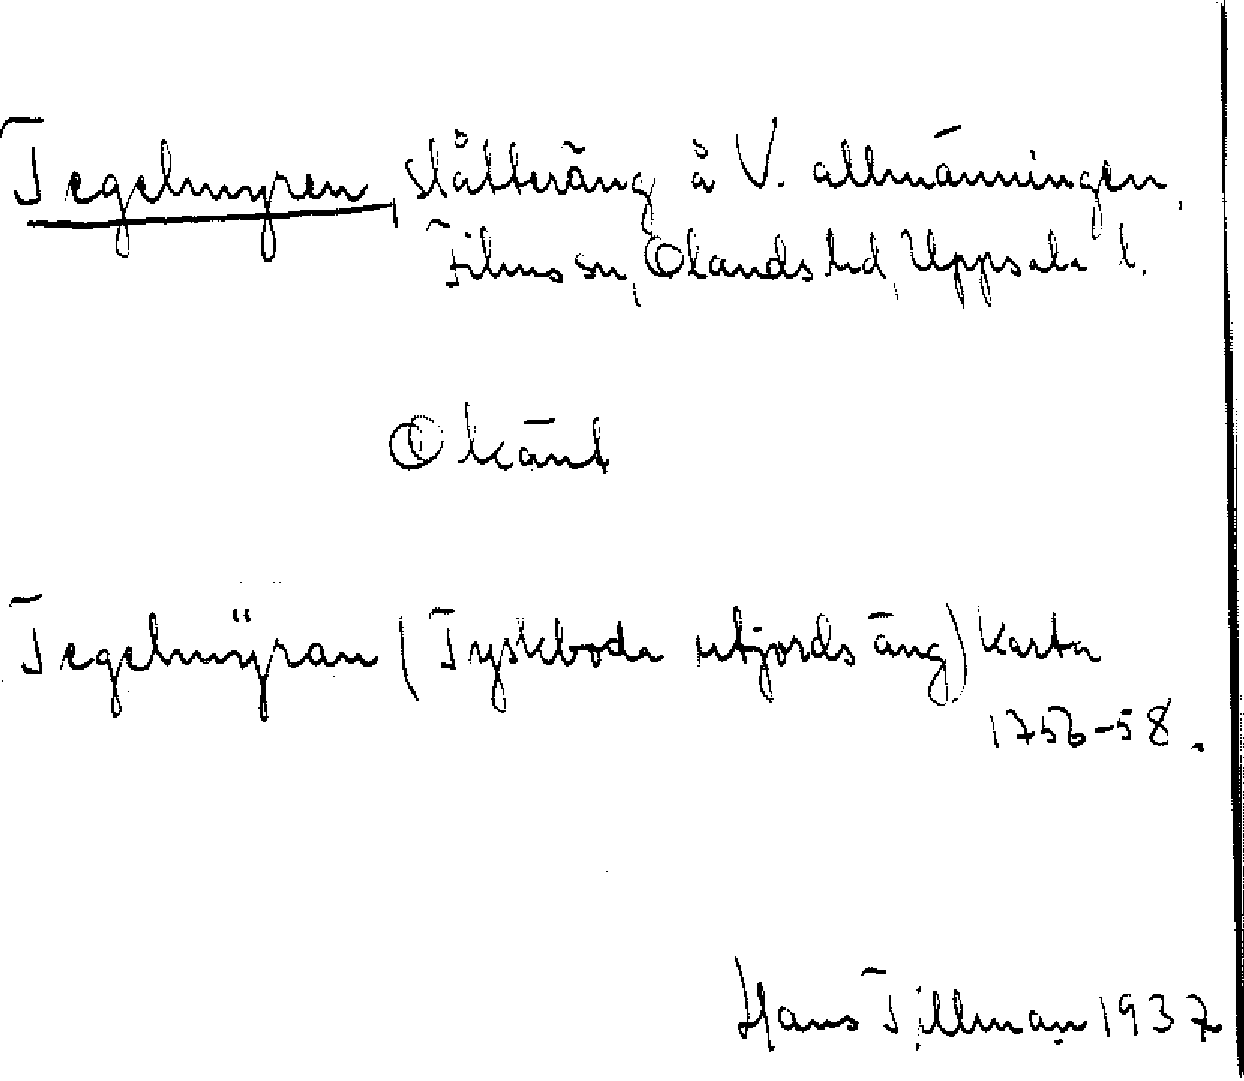 Tegelmyren, slåtteräng å V. allmänningen,
Films sn, Olands hd, Uppsala l.
Okänt
Tegelmÿran (Tyskboda utjords äng) Karta
1756-58.
Hans Tillman 1937